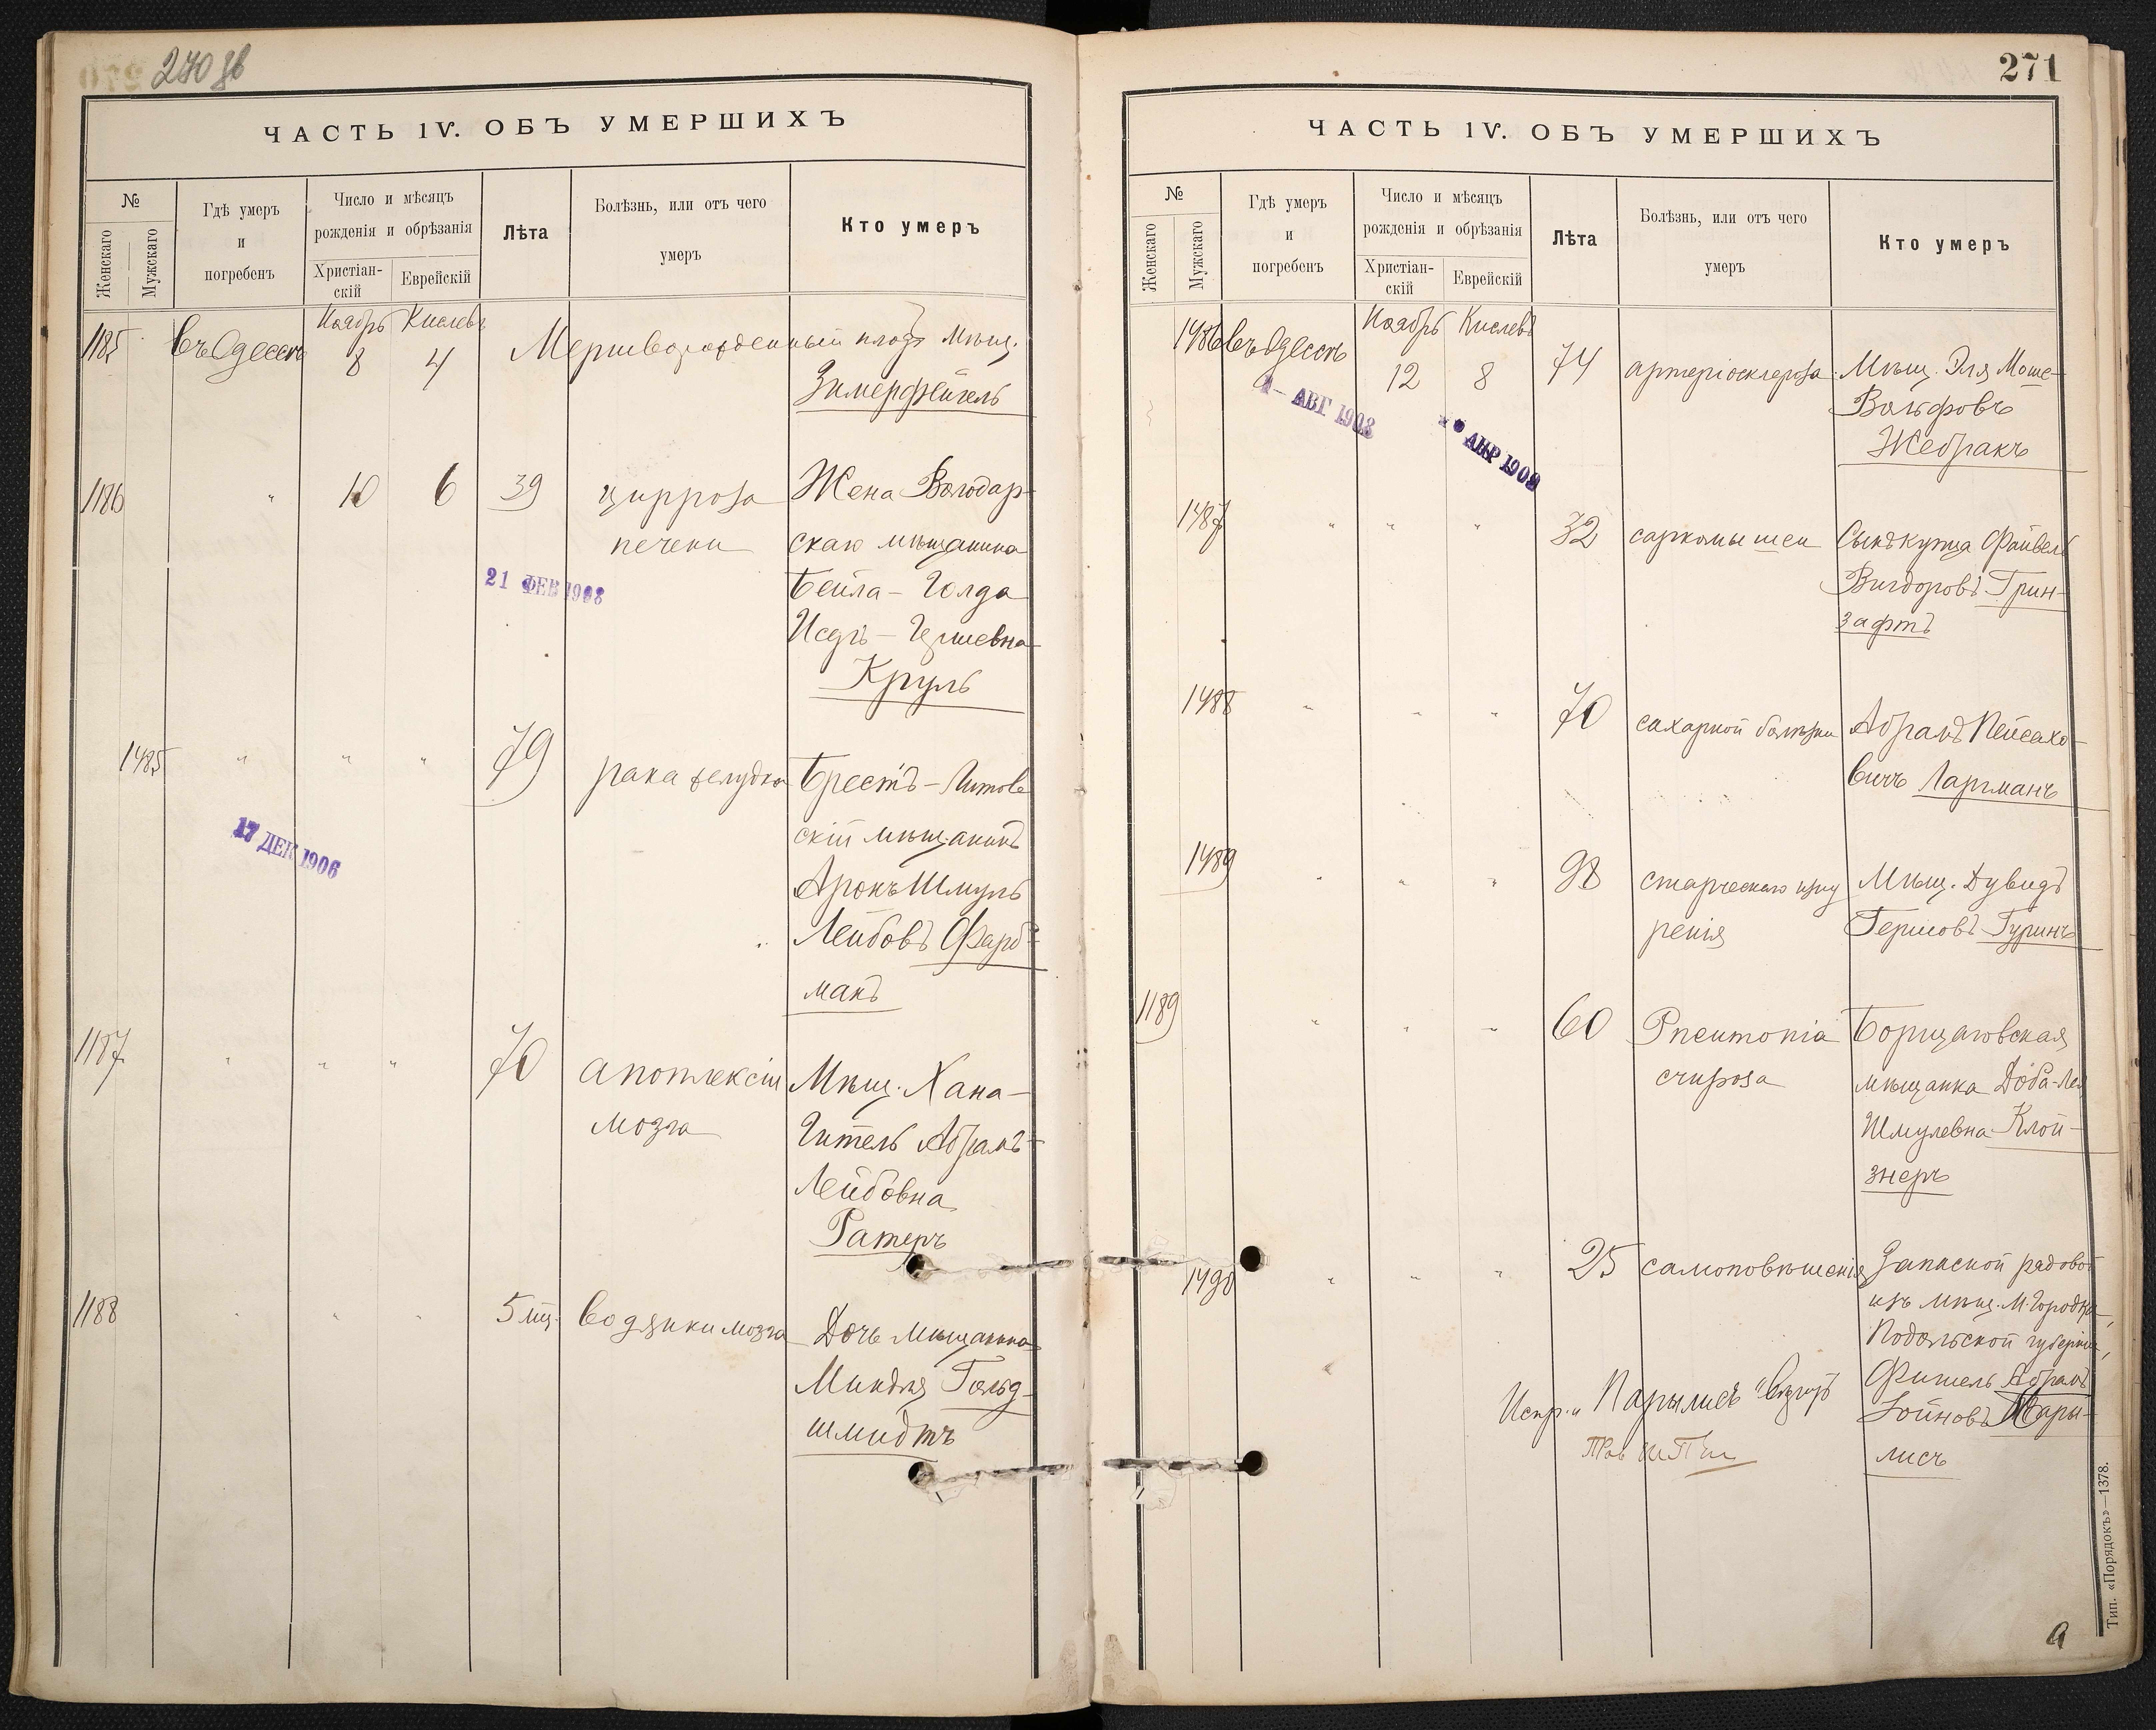 270 об
ЧАСТЬ IV. ОБЪ УМЕРШИХЪ
№
Женскаго
Мужскаго
Гдѣ умеръ
и
погребенъ
Число и мѣсяцъ
рожденія и обрѣзанія
Христіан-
скій
Еврейскій
Лѣта
Болѣзнь, или отъ чего
умеръ
Кто умеръ
Ноябрь Кислевъ
1185 въ Одессѣ 8 4 Мертворожденный плодъ мѣщ.
Зимерфейгель
1186 " 10 6 39 цирроза Жена Володар-
печени скаго мѣщанина
21 ФЕВ 1908
Бейла-Голда
Исеръ-Гершевна
Круль
1485 " " " 79 рака желудка Брестъ-Литов
скій мѣщанинъ
17 ДЕК 1906
Аронъ Шмуль
Лейбовъ Фарб-
манъ
1187 " " " 70 апоплексіи Мѣщ. Хана-
мозга Гитель Абрамъ-
Лейбовна
Ратеръ
1188 " " " 5 мц. водянки мозга Дочь мѣщанина
Миндля Гольд-
шмидтъ
271
ЧАСТЬ IV. ОБЪ УМЕРШИХЪ
№
Женскаго
Мужскаго
Гдѣ умеръ
и
погребенъ
Число и мѣсяцъ
рожденія и обрѣзанія
Христіан-
скій
Еврейскій
Лѣта
Болѣзнь, или отъ чего
умеръ
Кто умеръ
Ноябрь Кислевъ
1486 въ Одессѣ 12 8 74 артеріосклероза Мѣщ. Эля Моше-
Вольфовъ
Жебракъ
АВГ 1903
АПР 1909
1487 " " " 32 саркомы шеи Сынъ купца Файвель
Вигдоровъ Грин-
зафтъ
1488 " " " 70 сахарной болѣзни Абрамъ Пейсахо-
вичъ Ларманъ
1489 " " " 98 старческаго изну
ренія
Мѣщ. Дувидъ
Гершовъ Гуринъ
1189 " " " 60 Pneumonia Борщаговская
мѣщанка Доба-Лея
Шмулевна Клой-
знеръ
1490 " " " 25 самоповѣшенія Запасной рядовой
изъ мѣщ. М. Городка,
Подольской губерніи,
Фишель Абрамъ
Зойновъ Пары-
лисъ
Испр. "Парылисъ" вѣрить
Тип. «Порядокъ»—1378.